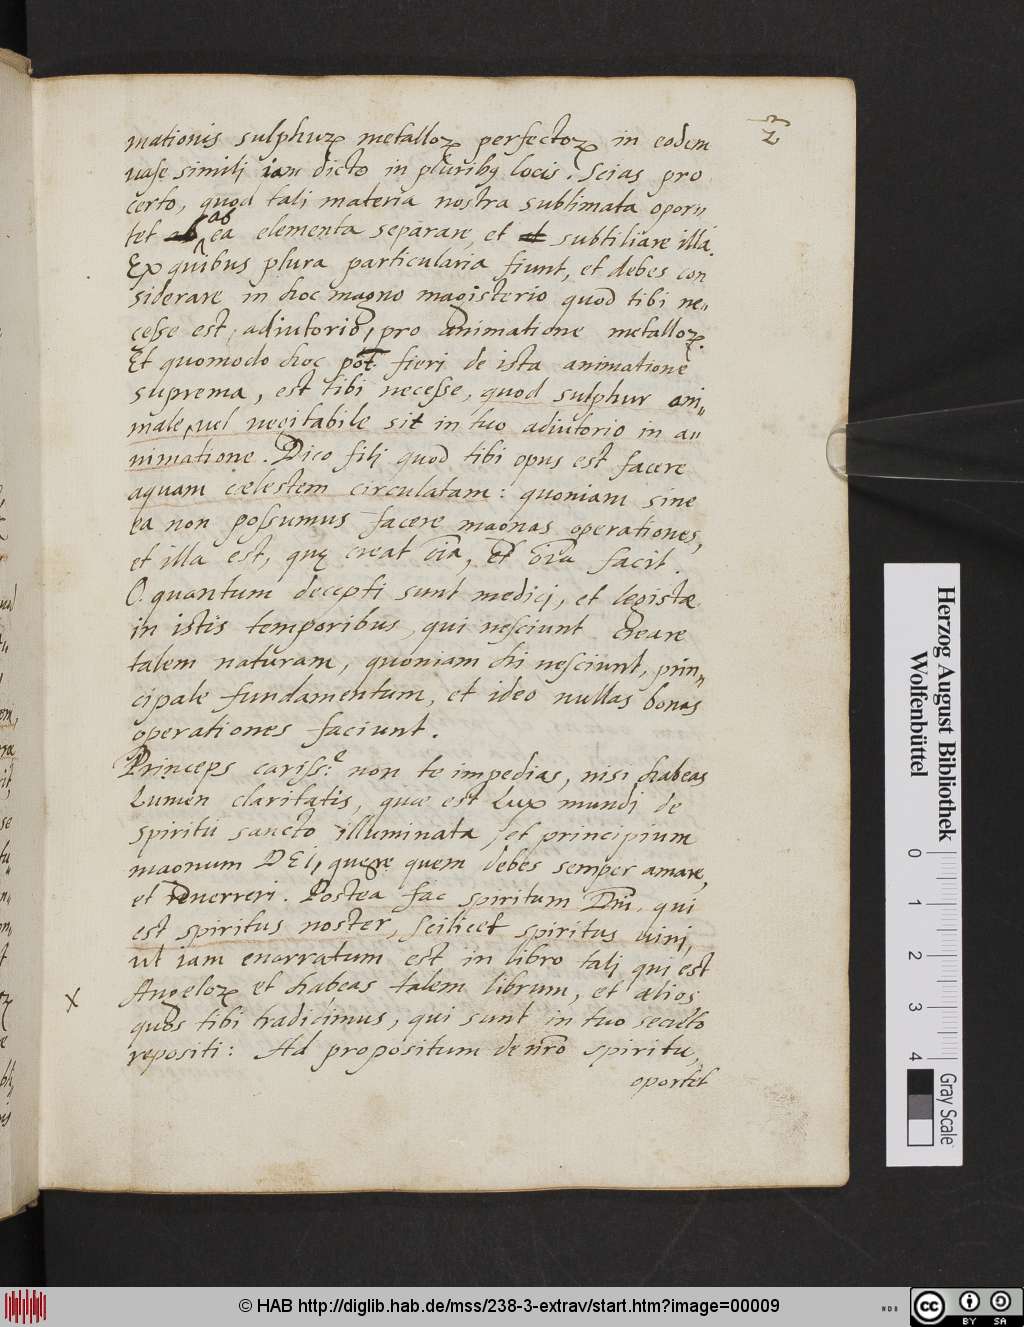 3
2
mationis sulphurꝝ metalloꝝ perfectoꝝ in eodem
vase simili iam dicto in pluribꝰ locis. Scias pro
certo, quod tali materia nostra sublimata opor„
tet ab ea elementa separare, et subtiliare illā.
Ex quibus plura particularia fiunt, et debes con
siderare in hoc magno magisterio quod tibi ne„
cesse est, adiutorio, pro animatione metalloꝝ.
Et quomodo hoc põt. fieri de ista animatione
suprema, est tibi necesse, quod sulphur ani„
male, vel vegitabile sit in tuo adiutorio in a„
nimatione. Dico filj quod tibi opus est facere
aquam cælestem circulatam: quoniam sine
ea non possumus facere magnas operationes,
et illa est, quę creat oīa, et oīa facit.
O quantum decepti sunt medici, et legistæ
in istis temporibus, qui nesciunt creare
talem naturam, quoniam hi nesciunt, prin„
cipale fundamentum, et ideo nullas bonas
operationes faciunt.
Princeps cariss.e non te impedias, nisi habeas
Lumen claritatis, quæ est Lux mundi de
spiritu sancto illuminata, et principium
magnum DEI, quem debes semper amare,
et reverreri. Postea fac spiritum Dñi, qui
est spiritus noster, scilicet spiritus vini,
ut iam enarratum est in libro tali qui est
X Angeloꝝ et habeas talem librum, et alios
quos tibi tradicimus, qui sunt in tuo seculo
repositi: Ad propositum de nr̃o spiritu,
oportet
Herzog August Bibliothek
Wolfenbüttel
0 1 2 3 4
Gray Scale
© HAB http://diglib.hab.de/mss/238-3-extrav/start.htm?image=00009
CC BY SA